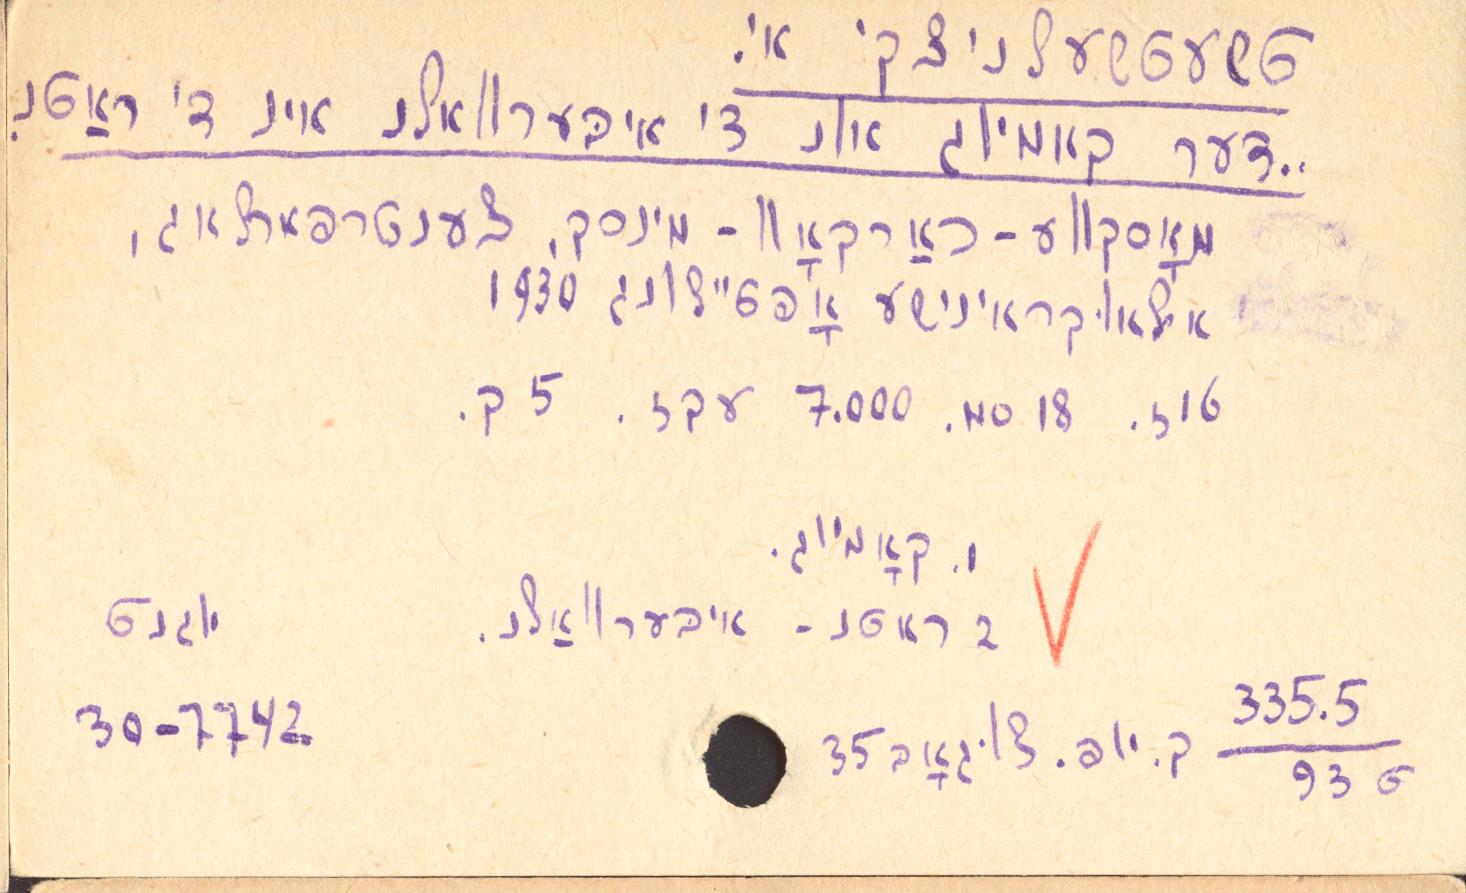 טשעטשעלניצקי אי.
„דער קאמיוג און די איבערוואלנ אינ די ראַטנ.
מאָסקווע - כאַרקאָוו - מינסק, צענטרפארלאג,
אלאוקראינישע אָפטיילונג 1930
16 ז. 18 סמ. 7.000 עקז. 5 ק.
1. קאָמיוג.
2 ראטנ - איבערוואַלנ.
יוגנט
335.5
ט 93
ק. יופ. צוגאָב 35
30-7742